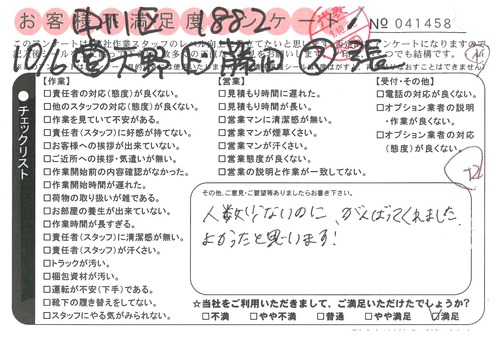 お客様満足度アンケート
中川区 18882
No 041458
10/6
チェックリスト
【作業】
□責任者の対応(態度)が良くない。
□他のスタッフの対応(態度)が良くない。
□作業を見ていて不安がある。
□責任者(スタッフ)に好感が持てない。
□お客様への挨拶が出来ていない。
□ご近所への挨拶・気遣いが無い。
□作業開始前の内容確認がなかった。
□作業開始時間が遅れた。
□荷物の取り扱いが雑である。
□お部屋の養生が出来ていない。
□作業時間が長すぎる。
□責任者(スタッフ)に清潔感が無い。
□責任者(スタッフ)が汗くさい。
□トラックが汚い。
□梱包資材が汚い。
□運転が不安(下手)である。
□靴下の履き替えをしてない。
□スタッフにやる気がみられない。
【営業】
□見積もりに遅れた。
□見積もり時間が長い。
□営業マンに清潔感が無い。
□営業マンが煙草くさい。
□営業マンが汗くさい。
□営業態度が良くない。
□営業の説明と作業が一致してない。
【受付・その他】
□電話の対応が良くない。
□オプション業者の説明
・作業が良くない。
□オプション業者の対応
(態度)が良くない。
その他、ご意見・ご要望等ありましたらお書き下さい。
人数少ないのに、がんばってくれました。
よかったと思います!
☆当社をご利用いただきまして、ご満足いただけたでしょうか?
□不満 □やや不満 □普通 □やや満足 □満足